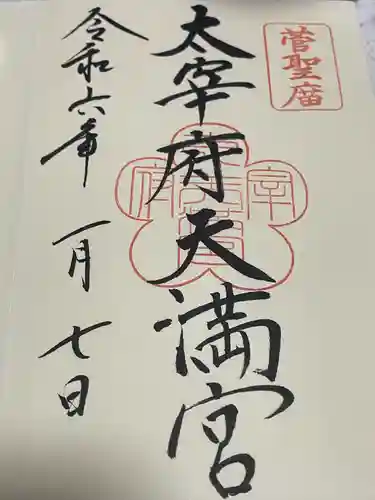 菅聖廟
太宰府天満宮
令和六年 一月 七日